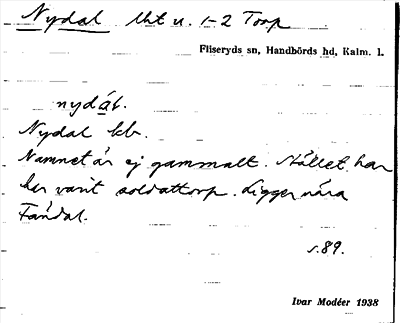 Nydal lht u. 1-2 Torp
Fliseryds sn, Handbörds hd, Kalm. l.
nydáḷ.
Nydal kb.
Namnet är ej gammalt. Stället har
här varit soldattorp. Ligger nära
Fårdal.
s. 89.
Ivar Modéer 1938